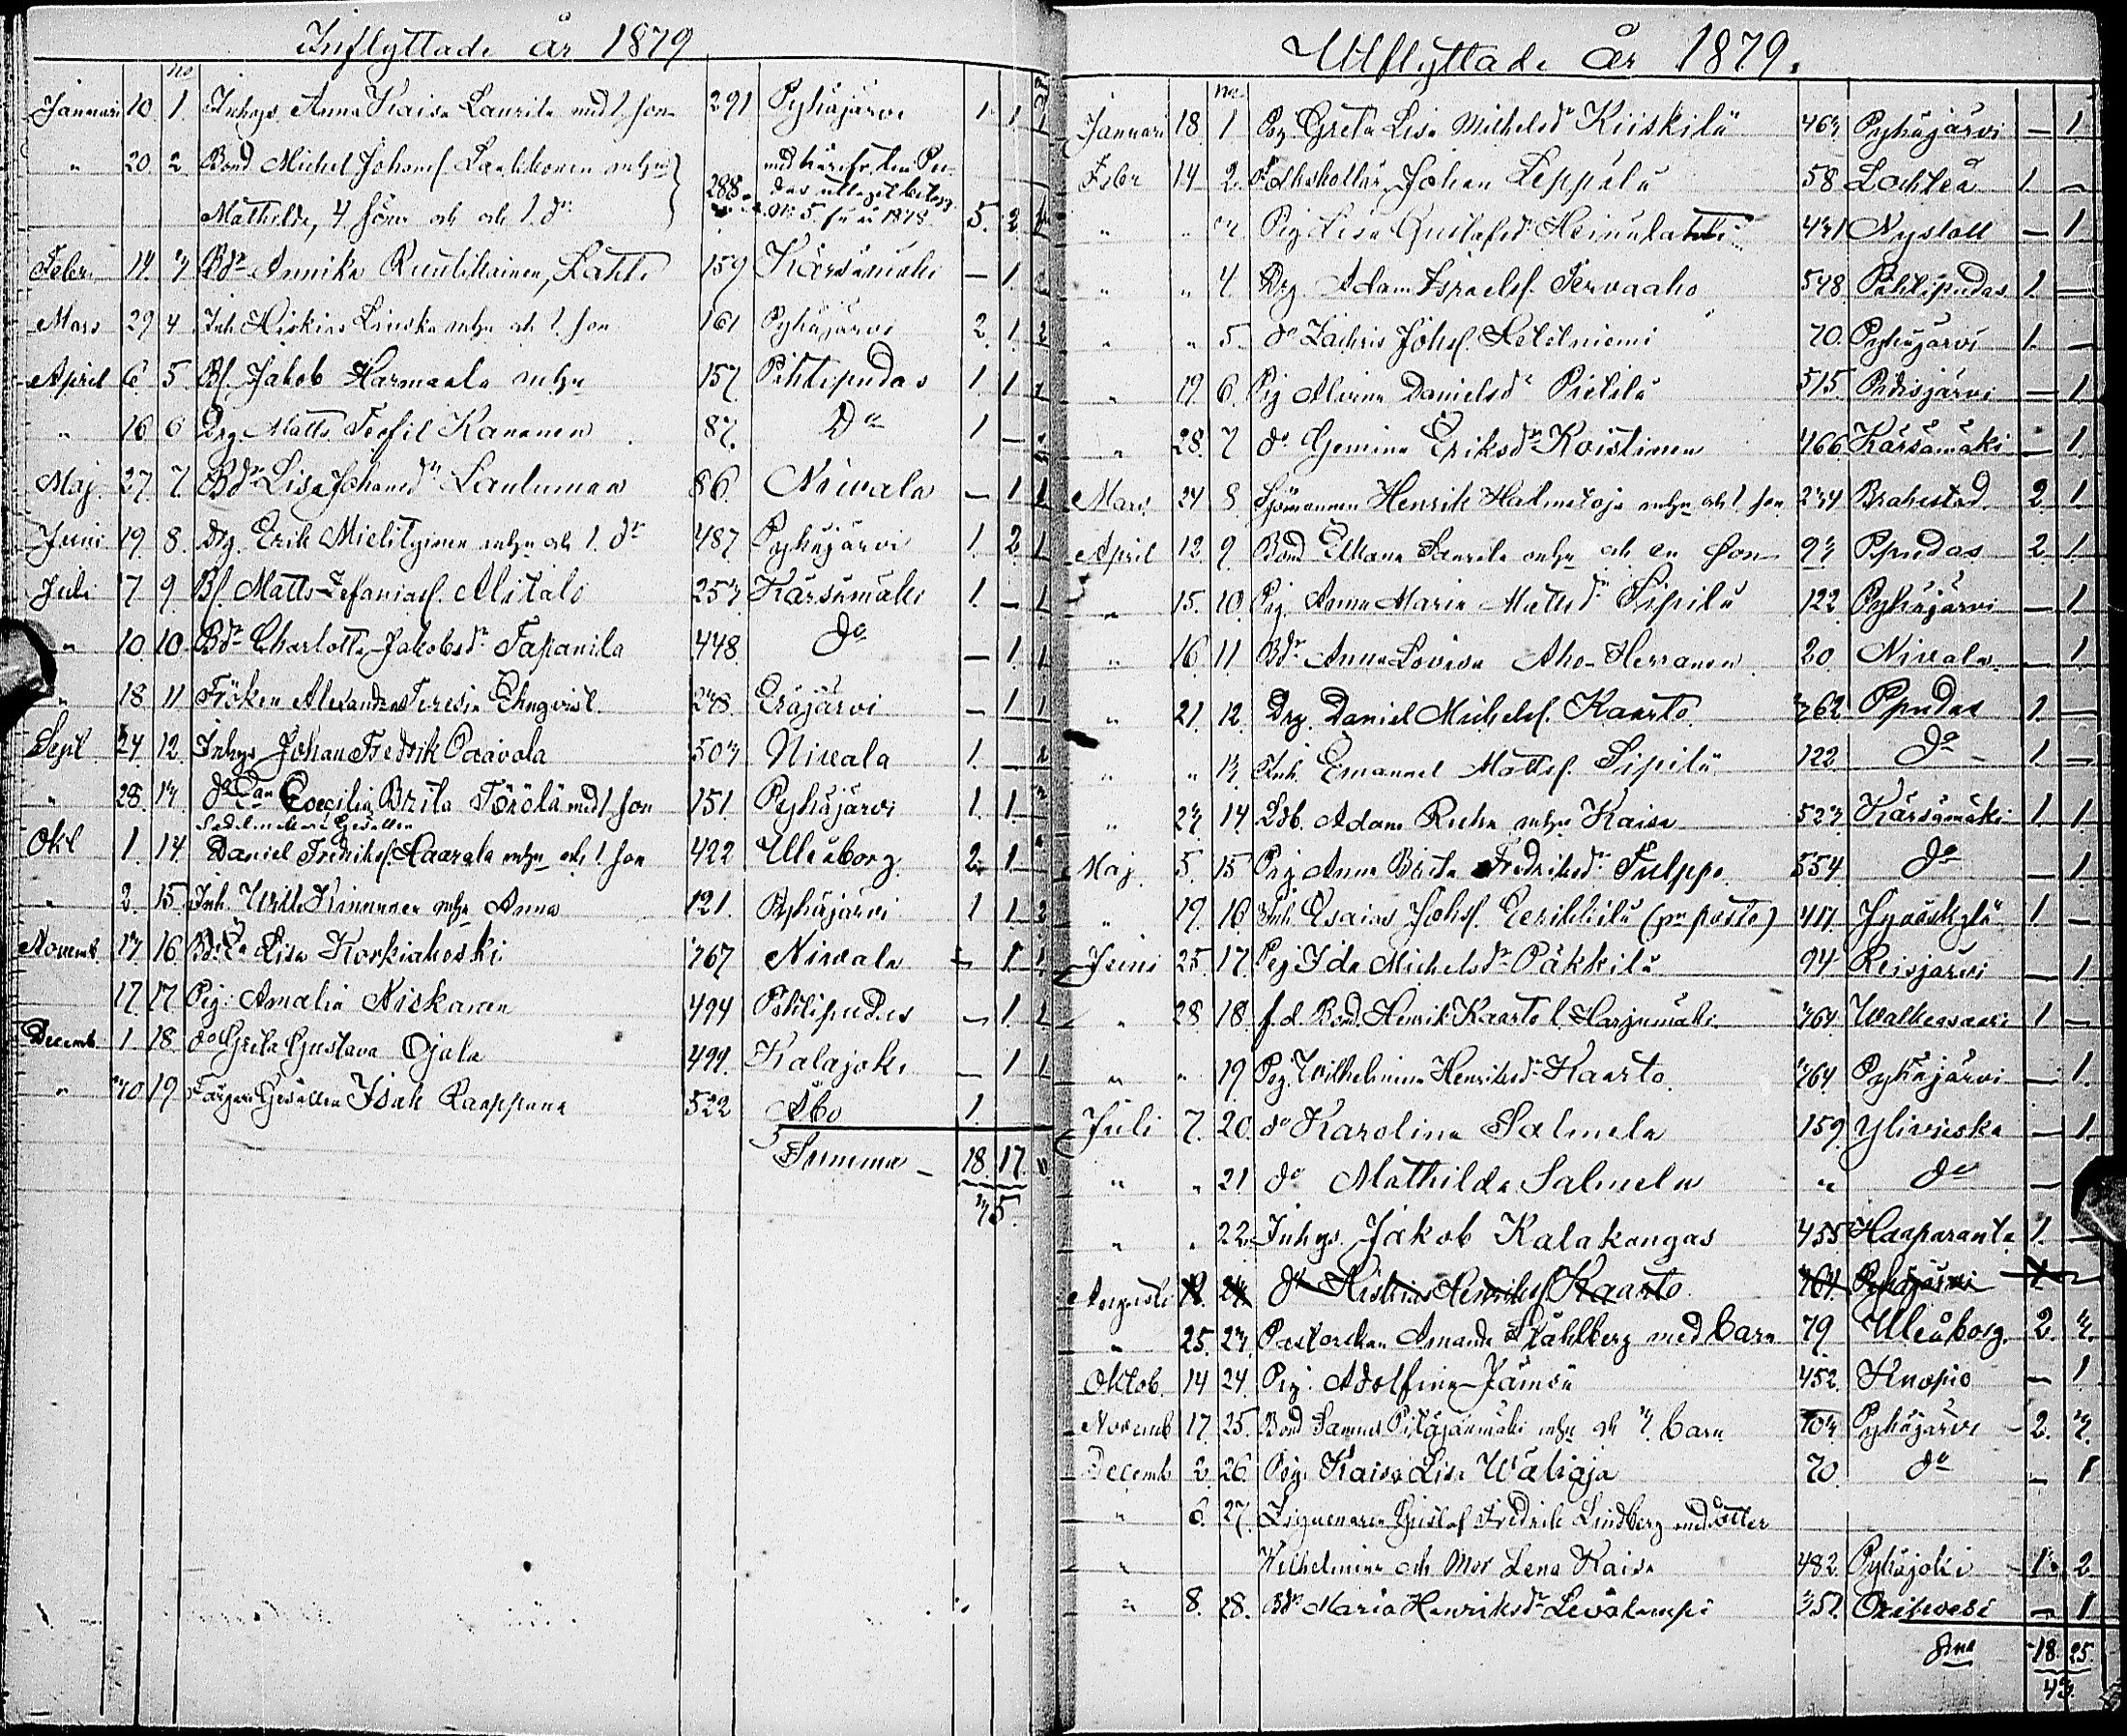 Inflyttade år 1879
no
Januari 10. 1. Inhys. Anna Kaisa Laurila med 1. son 291 Pyhäjärvi 1 1
" 20. 2 Bond Michel Johansf. Laukkonen mhu
Mathilda, 4 söner och 1. dr 288 No 5. för år 1878 5. 2
Febr. 14. 3 Bdr Annika Ruutikainen, Lahti 159 Kärsämäki — 1.
Mars 29 4 Inh. Hiskias Linska mhu och 1. son 161 Pyhäjärvi 2. 1. 2
April 6 5. Bf. Jakob Harmaala mhu 157. Pihtipudas 1. 1
" 16 6 Drg. Matts Teofil Kananen 87. Do 1 —
Maj. 27. 7. Bdr Lisa Johansdr Lauluman 86. Nivala — 1 1
Juni 19 8. Drg. Erik Mielityinen mhu och 1. dr 487 Pyhäjärvi 1. 2 1
Juli 7 9. Bf. Matts Zefaniasf. Alitalo 253 Kärsämäki 1. — 1
" 10. 10. Bdr Charlotta Jakobsdr Tapanila 448. do — 1. 1
" 18 11 Fröken Alexandra Teresia Ehnqvist. 278. Eräjärvi — 1 1
Sept. 24 12. Inhys Johan Fredrik Paavola 503 Nivala 1. —
" 28. 13. do Eva Coecilia Brita Törölä med 1. son 151. Pyhäjärvi 1. 1.
Sadelmakare Gesällen
Okt 1. 14 Daniel Fredriksf. Haarala mhu och 1. son 422 Uleåborg. 2. 1
" 2. 15. Inh. Wilh. Kinnunen mhu Anna 121. Pyhäjärvi 1 1. 2
Novemb. 13. 16. Lisa Korkiakoski 367 Nivala — 1 1.
17. 17 Pig. Amalia Niskanen 494 Pihtipudas — 1. 1
Decemb. 1. 18. do Greta Gustava Ojala 499. Kalajoki — 1 1
" 30. 19 Färgare Gesällen Isak Raappana 522 Åbo 1.
Summa — 18. 17.
35.
Utflyttade år 1879.
no
Januari 18. 1 Pig Greta Lisa Michelsdr Kiiskilä 463 Pyhäjärvi — 1.
Febr 14 2. Folkskollär. Johan Leppälä 58 Lochteå 1. —
" " 3 Pig Lisa Gustafsdr Heinulahti 431 Nystott — 1
" " 4. Drg. Adam Israelsf. Tervaaho 548. Pihtipudas 1. —
" " 5. do Zachris Johsf. Hetelniemi 70. Pyhäjärvi 1. —
" 19. 6. Pig Alvina Danielsdr Pietilä 515. Piedisjärvi — 1.
" 28. 7 do Gemina Eriksdr Koistinen 466. Kärsämäki — 1.
Mars 24 8. Sjömannen Henrik Halmetoja mhu och 1. son 234 Brahestad. 2 1
April 12. 9 Bond Elkana Laurila mhu och en son 93 Ppudas 2. 1.
" 15. 10. Pig. Anna Maria Mattsdr Sipilä 122 Pyhäjärvi — 1.
" 16. 11. Bdr Anna Lovisa Aho-Herranen 20 Nivala — 1.
" 21. 12. Drg. Daniel Michelsf. Kaarto. 362 Ppudas 1. —
" " 13. Inh. Emanuel Mattsf. Sipilä 122 do — 1 —
" 23. 14 Ldb. Adam Ruha mhu Kaisa 523. Kärsämäki 1. 1.
Maj. 5. 15 Pig Anna Brita Fredriksdr Tulppo 554. do — 1.
" 19. 16. Inh Esaias Johsf. Eerikkilä (pr posto) 411. Jyväskylä 1. —
Juni 25. 17. Pig Ida Michelsdr Päkkilä 94 Reisjärvi — 1.
" 28. 18. f.d. Bond. Henrik Kaarto l. Harjumäki 364. Walkeasaari 1 —
" " 19 Pig. Wilhelmina Henriksdr Kaarto. 364 Pyhäjärvi — 1.
Juli 7. 20. do Karolina Salmela 159. Ylivieska — 1.
" " 21 do Mathilda Salmela " do —
" " 22. Inhys. Jakob Kalakangas 455 Haaparanta. 1. —
Augusti do Hiskias Henriksf. Kaarto. 364. Pyhäjärvi 1 —
" 25. 23. Pastorskan Amanda Ståhlberg med barn 79 Uleåborg. 2. 3.
Oktob. 14 24. Pig. Adolfina Jämsä 452. Kuopio — 1.
Novemb 17. 25. Bond Samuel Pitäjänmäki mhu och 3. barn 103 Pyhäjärvi — 2. 3.
Decemb 2. 26. Pig. Kaisa Lisa Wäliaja 70. do — 1
" 6. 27. Lignenaren Gustaf Fredrik Lindberg med dotter
" Wilhelmina och Mor Lena Kaisa 482. Pyhäjoki 1. 2.
" 8. 28. Bdr Maria Henriksdr Levälampi 351. Orihvesi — 1
Sma 18. 25.
43.